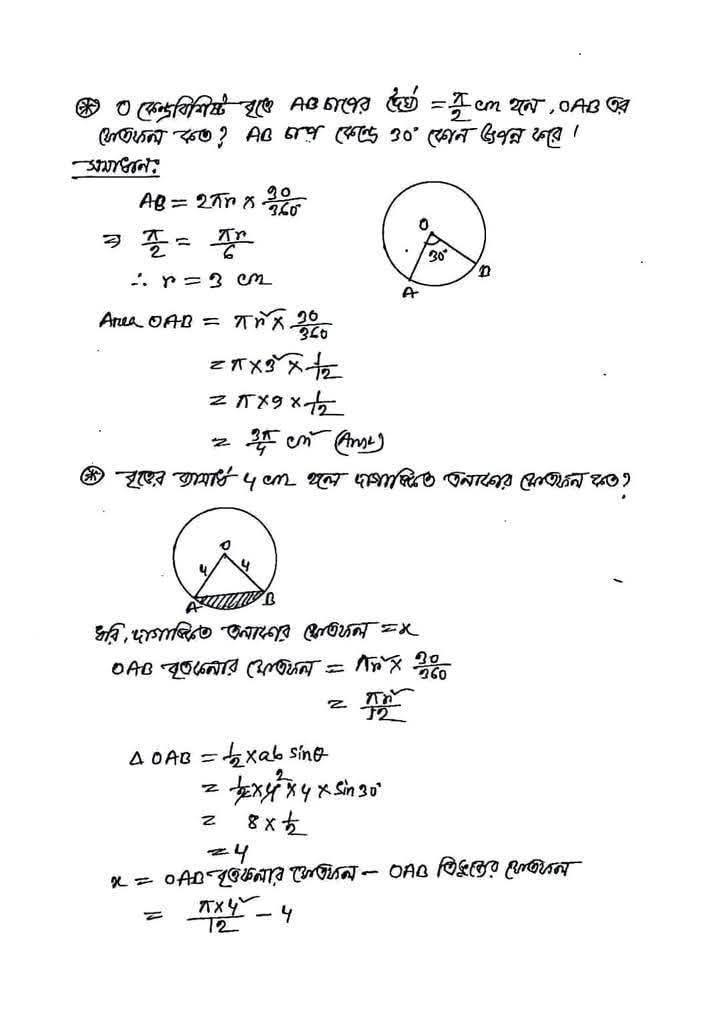 ⊛ O কেন্দ্রবিশিষ্ট বৃত্তে AB চাপের দৈর্ঘ্য = π/2 cm হলে, OAB এর
ক্ষেত্রফল কত? AB চাপ কেন্দ্রে 30° কোন উৎপন্ন করে।
সমাধান:
AB = 2πr × 30/360°
⇒ π/2 = πr/6
∴ r = 3 cm
O
30°
A
B
Area OAB = πr² × 30/360
= π×3² × 1/12
= π×9 × 1/12
= 3π/4 cm² (Ans:)
⊛ বৃত্তের ব্যাসার্ধ 4 cm হলে দাগাঙ্কিত তলাংশের ক্ষেত্রফল কত?
O
4
4
A
B
ধরি, দাগাঙ্কিত তলাংশের ক্ষেত্রফল = x
OAB বৃত্তকলার ক্ষেত্রফল = πr² × 30/360
= πr²/12
Δ OAB = 1/2 × ab sinθ
= 1/2 × 4² × 4 × sin 30°
= 8 × 1/2
= 4
x = OAB বৃত্তকলার ক্ষেত্রফল − OAB ত্রিভুজের ক্ষেত্রফল
= π×4²/12 − 4